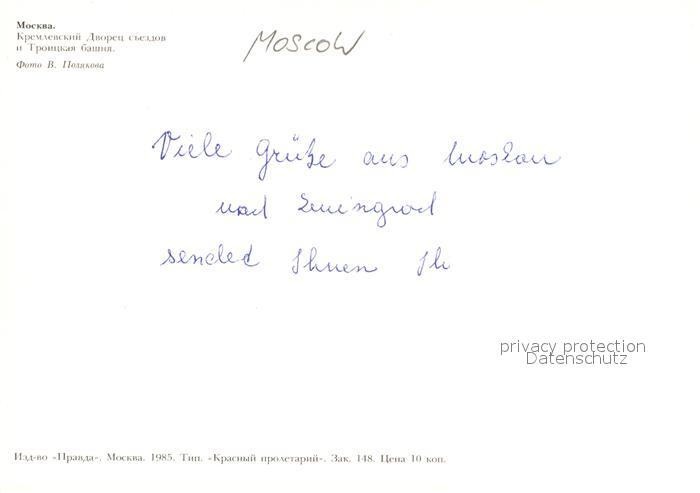 Москва.
Кремлевский Дворец съездов
и Троицкая башня.
Фото В. Полякова
Moscow
Viele Grüße aus Moskau
und Leningrad
sendet Ihnen Ih
privacy protection
Datenschutz
Изд-во «Правда». Москва. 1985. Тип. «Красный пролетарий». Зак. 148. Цена 10 коп.